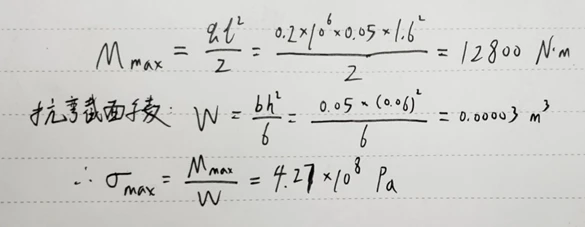 M max = qℓ²/2 = 0.2×10⁶×0.05×1.6²/2 = 12800 N·m
抗弯截面手数: W = bh²/6 = 0.05×(0.06)²/6 = 0.00003 m³
∴ σmax = Mmax/W = 4.27×10⁸ Pa